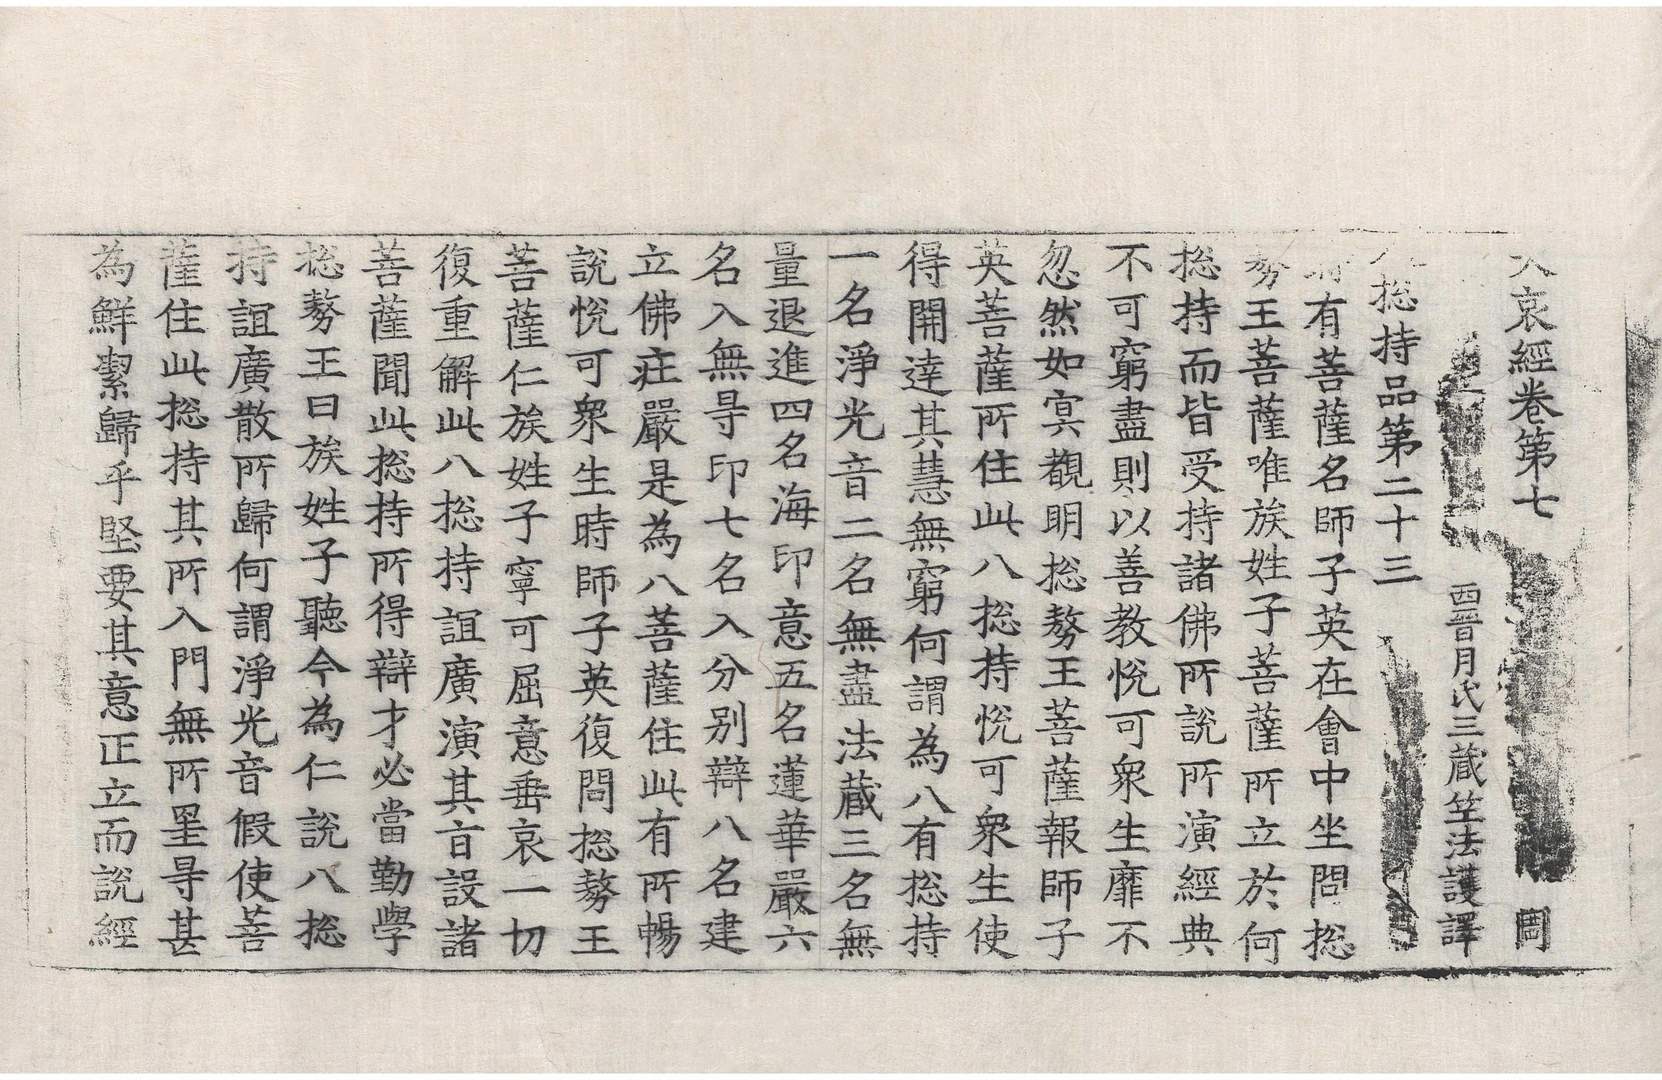 大哀經卷第七 罔
西晉月氏三藏竺法護譯
八捴持品第二十三
有菩薩名師子英在會中坐問捴
勢王菩薩唯族姓子菩薩所立於何
捴持而皆受持諸佛所說所演經典
不可窮盡則以善教悅可衆生靡不
忽然如冥覩明捴勢王菩薩報師子
英菩薩所住此八捴持悅可衆生使
得開達其慧無窮何謂為八有捴持
一名淨光音二名無盡法藏三名無
量退進四名海印意五名蓮華嚴六
名入無㝵印七名入分別辯八名建
立佛疘嚴是為八菩薩住此有所暢
說悅可衆生時師子英復問捴勢王
菩薩仁族姓子寧可屈意垂哀一切
復重解此八捴持誼廣演其音設諸
菩薩聞此捴持所得辯才必當勤學
捴勢王曰族姓子聽今為仁說八捴
持誼廣散所歸何謂淨光音假使菩
薩住此捴持其所入門無所罣㝵甚
為鮮潔歸乎堅要其意正立而說經